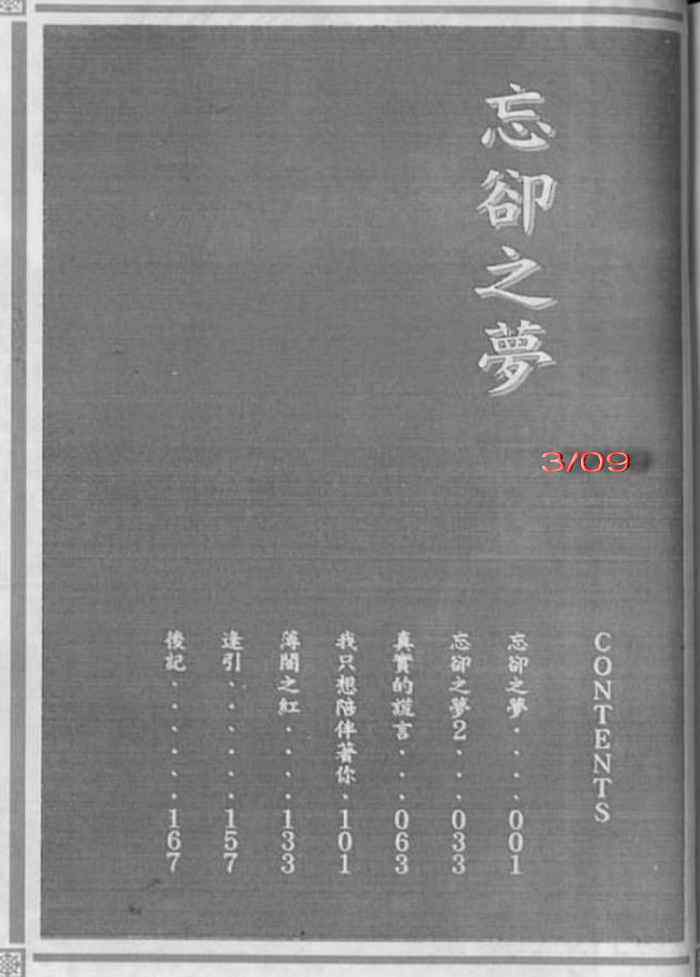 忘卻之夢
3/09
CONTENTS
忘卻之夢．．．．．001
忘卻之夢2．．．033
真實的謊言．．．063
我只想陪伴著你．101
薄闇之紅．．．．133
逢引．．．．．．157
後記．．．．．．167